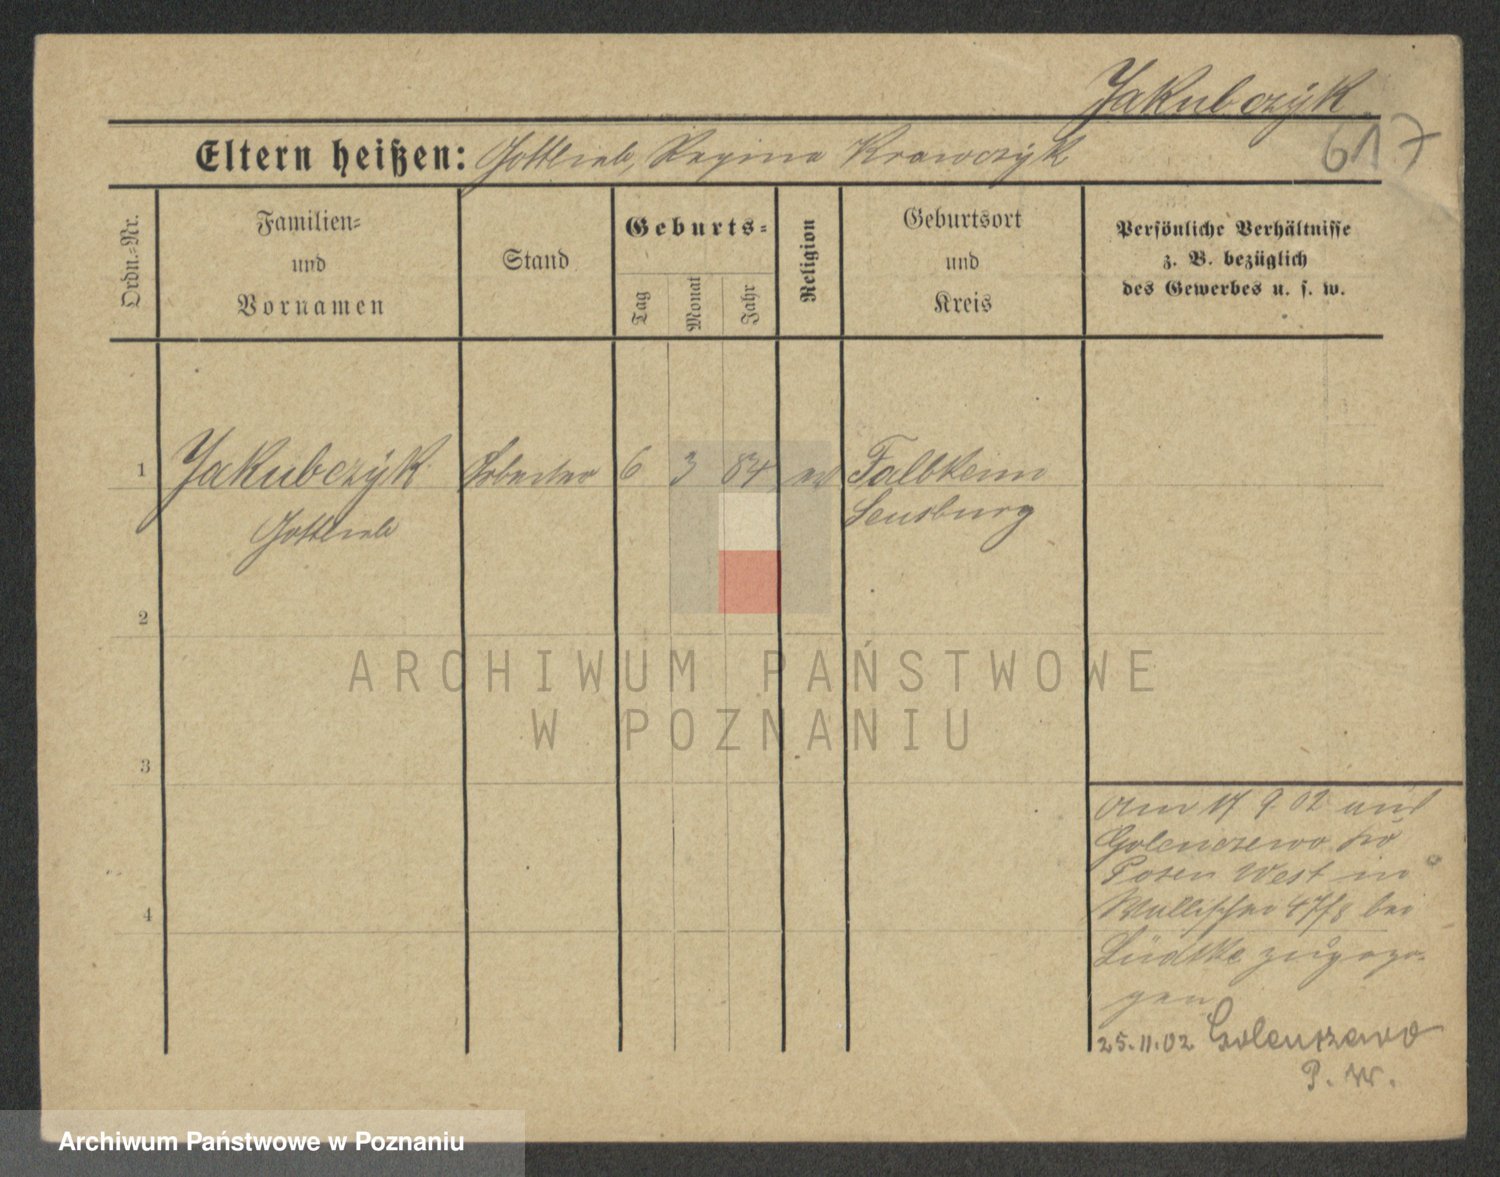 Jakubczÿk
617
Eltern heißen: Gottlieb, Regina Krawczÿk
Ordn.-Nr.
Familien-
und
Vornamen
Stand
Geburts-
Tag
Monat
Jahr
Religion
Geburtsort
und
Kreis
Persönliche Verhältnisse
z. B. bezüglich
des Gewerbes u. s. w.
1 Jakubczÿk Arbeiter 6 3 84 ev
Gottlieb
Sensburg
2
3
4
ARCHIWUM PAŃSTWOWE
W POZNANIU
Am 17 9. 02 aus
Golenczewo Kr
Posen West in
Wallischei bei
Lüdtke zugezo-
gen
25.11.02 Golenczewo
P. W.
Archiwum Państwowe w Poznaniu